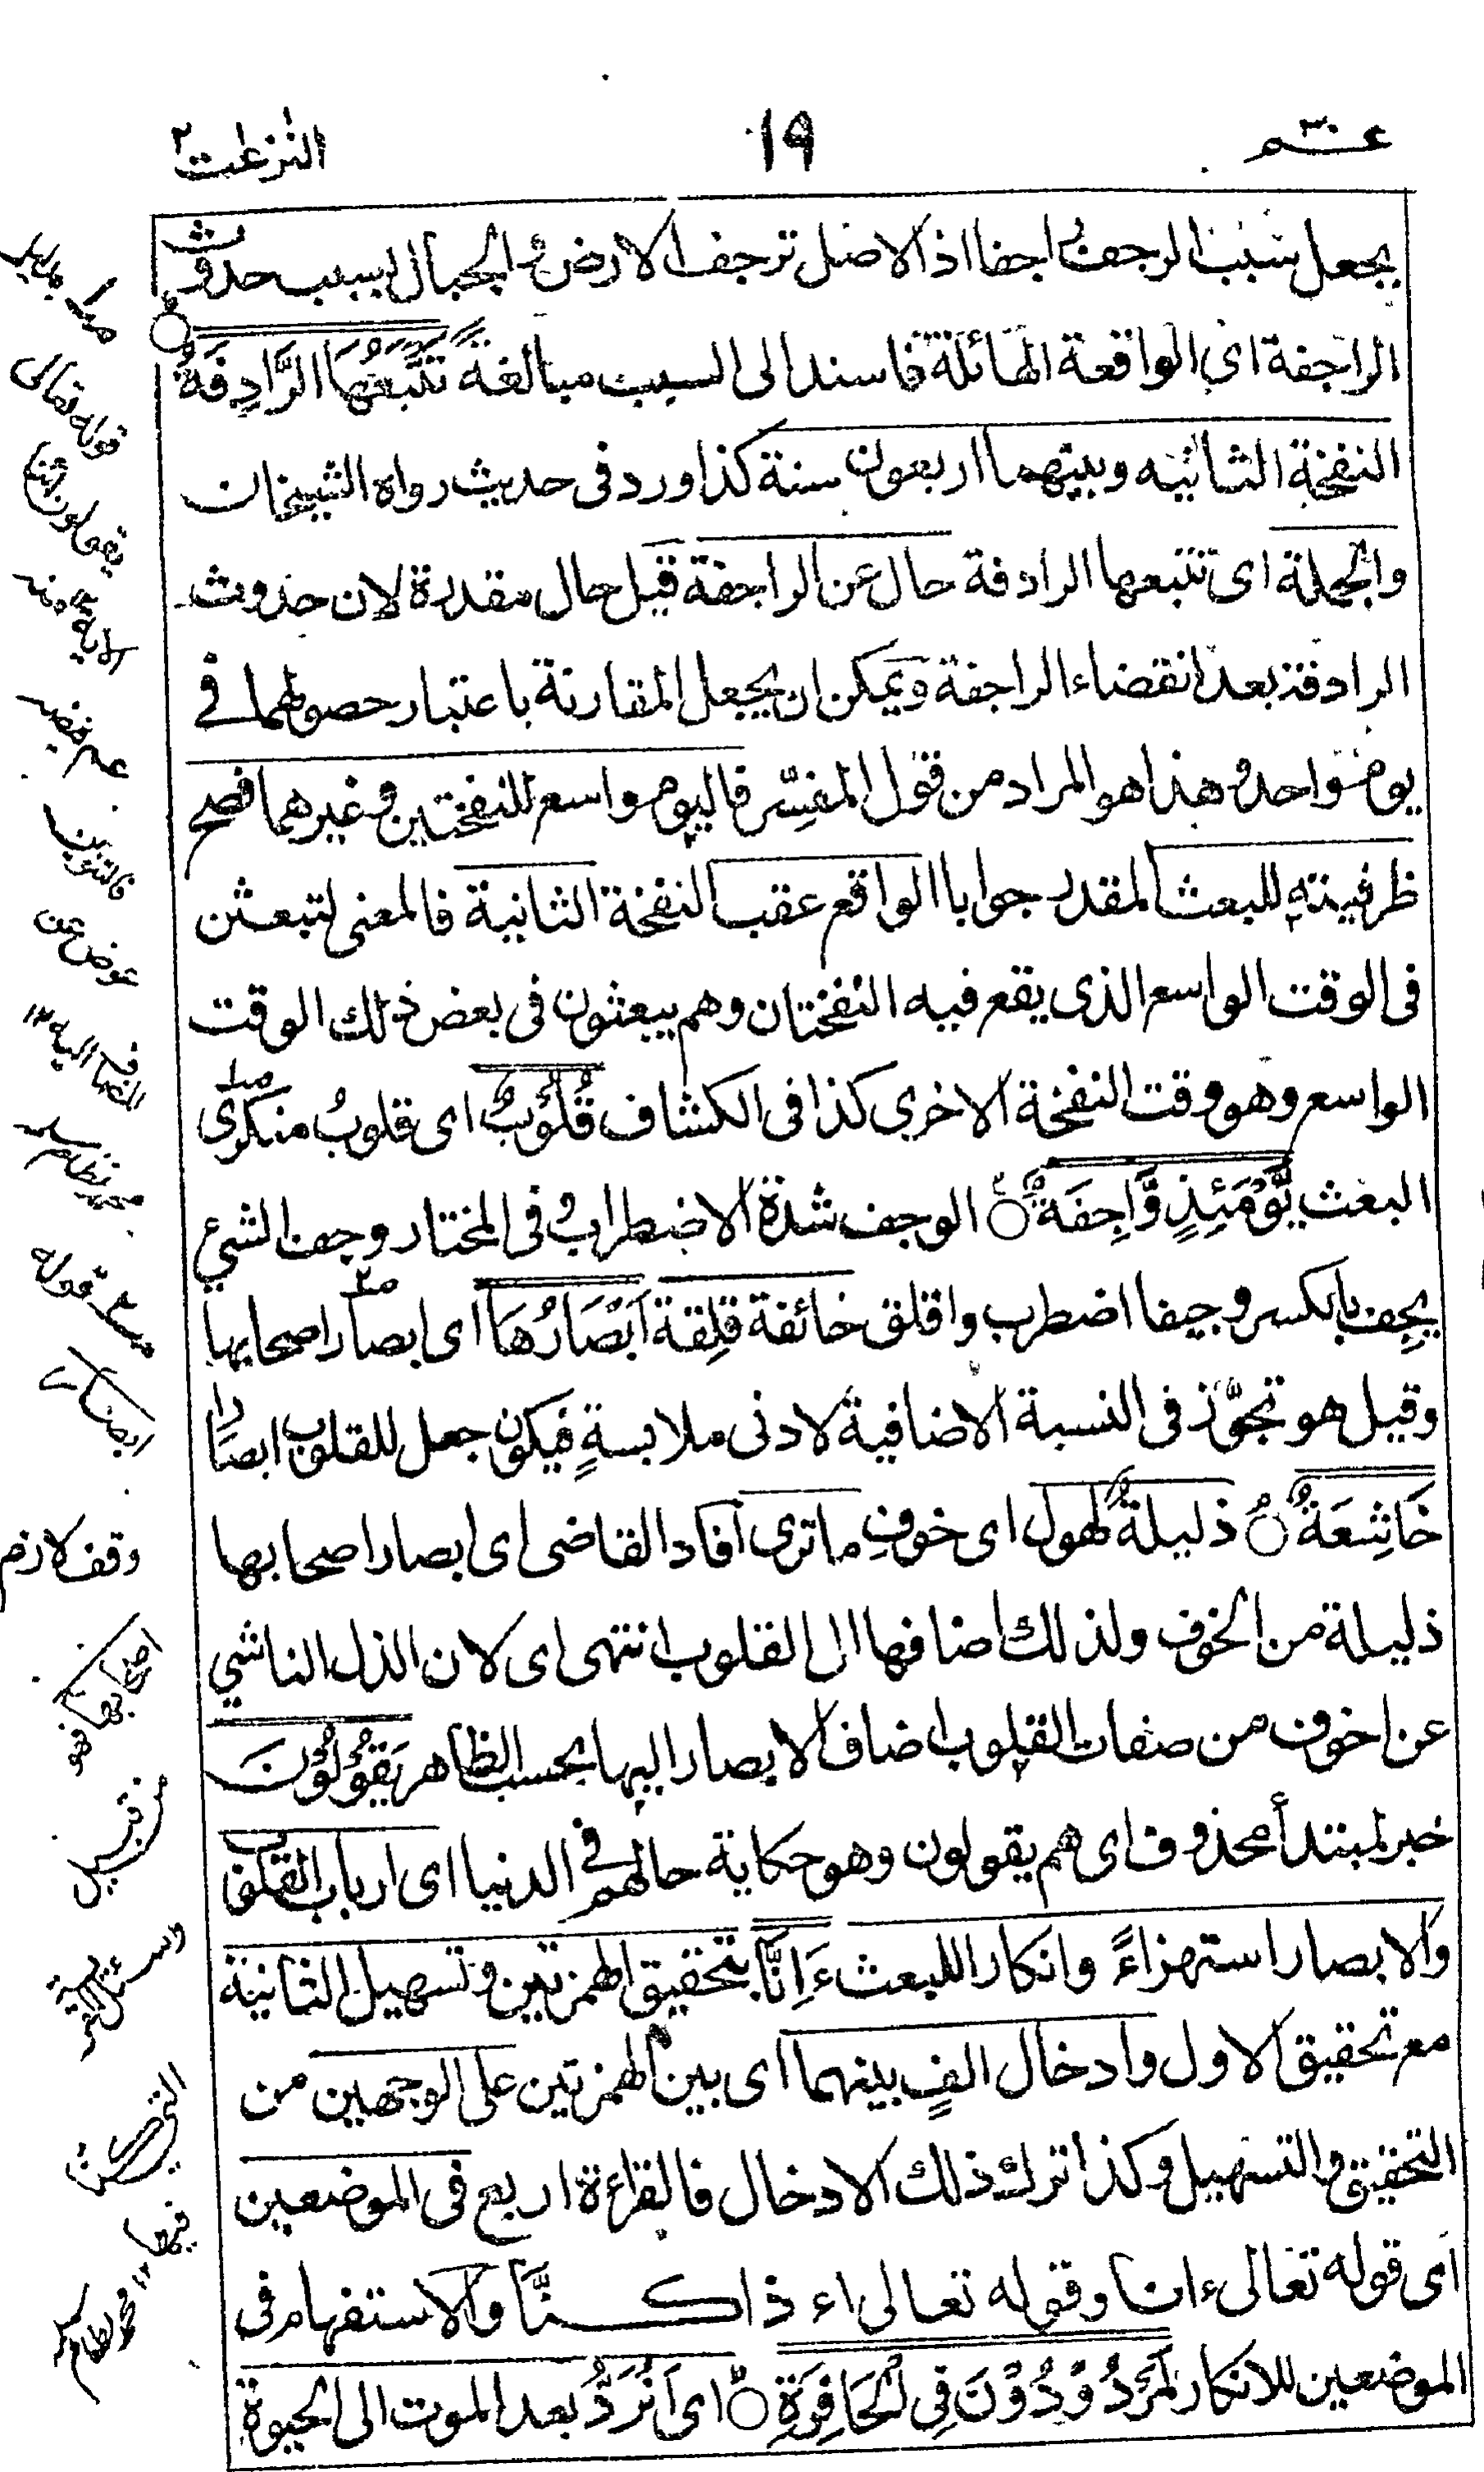 عـــم ٣٠
19
النزعت ٢
يجعل سبب الرجف راجفا اذ الاصل ترجف الارض و الجبال بسبب حدوث
الراجفة اى الواقعة الهائلة فاسند الى السبب مبالغة تَتْبَعُهَا الرَّادِفَةُ
النفخة الثانيه وبينهما اربعون سنة كذا ورد فى حديث رواه الشيخان
والجملة اى تتبعها الرادفة حال عن الراجفة قيل حال مقدرة لان حدوث
الرادفة بعد انقضاء الراجفة ويمكن ان يجعل المقارنة باعتبار حصولهما فى
يوم واحد و هذا هو المراد من قول المفسّر فاليوم واسع للنفختين وغيرهما فصح
ظرفيته للبعث المقدر جوابا الواقع عقب النفخة الثانية فالمعنى لتبعثن
فى الوقت الواسع الذى يقع فيه النفختان وهم يبعثون فى بعض ذلك الوقت
الواسع وهو وقت النفخة الاخرى كذا فى الكشاف قُلُوْبٌ اى قلوبُ منكرى
البعث يَّوْمَئِذٍ وَّاجِفَةٌ الوجف شدة الاضطراب و فى المختار وجف الشىء
يجِف بالكسر وجيفا اضطرب واقلق خائفة قلِقة اَبْصَارُهَا اى ابصار اصحابها
وقيل هو تجوّز فى النسبة الاضافية لادنى ملابسةٍ فيكون جعل للقلوب ابصارا
خَاشِعَةٌ ذليلة لهول اى خوفِ ما ترى افاد القاضى اى ابصار اصحابها
ذليلة من الخوف ولذلك اضافها الى القلوب انتهى اى لان الذل الناشى
عن اخوف من صفات القلوب اضاف الابصار اليها بحسب الظاهر يَقُوْلُوْنَ
خبر لمبتدأ محذوف اى هم يقولون وهو حكاية حالهم فى الدنيا اى ارباب القلوب
والابصار استهزاءً وانكارا للبعث ءَاِنَّا بتحقيق الهمزتين وتسهيل الثانية
مع تحقيق الاول وادخال الفٍ بينهما اى بين الهمزتين على الوجهين من
التحقيق والتسهيل وكذا ترك ذلك الادخال فالقراءة اربع فى الموضعين
اى قوله تعالى ءانا وقوله تعالى اء ذا كـــنَّا والاستفهام فى
الموضعين للانكار لَمَرْدُوْدُوْنَ فِى الْحَافِرَةِ اى اَنُرَدُّ بعد الموت الى الحيوة
قوله تعالى
يقولون ائنا
الاية منه
فالتنوين
عوض عن
المضاف اليه ١٢
قوله
ابصار
وقف لازم
اصحابها فهو
من قبيل
التى كنا
فيها